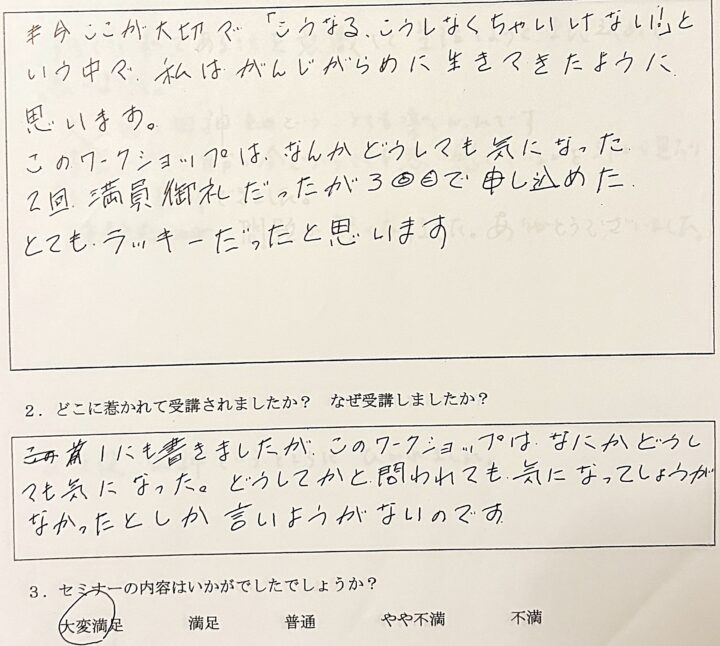 今ここが大切で「こうなる、こうしなくちゃいけない!」と
いう中で、私はがんじがらめに生きてきたように
思います。
このワークショップは、なんかどうしても気になった
2回満員御礼だったが3回目で申し込めた
とても、ラッキーだったと思います
2．どこに惹かれて受講されましたか？　なぜ受講しましたか？
前1にも書きましたが、このワークショップは、なにかどうし
ても気になった。どうしてかと問われても、気になってしょうが
なかったとしか言いようがないのです
3．セミナーの内容はいかがでしたでしょうか？
大変満足　満足　普通　やや不満　不満